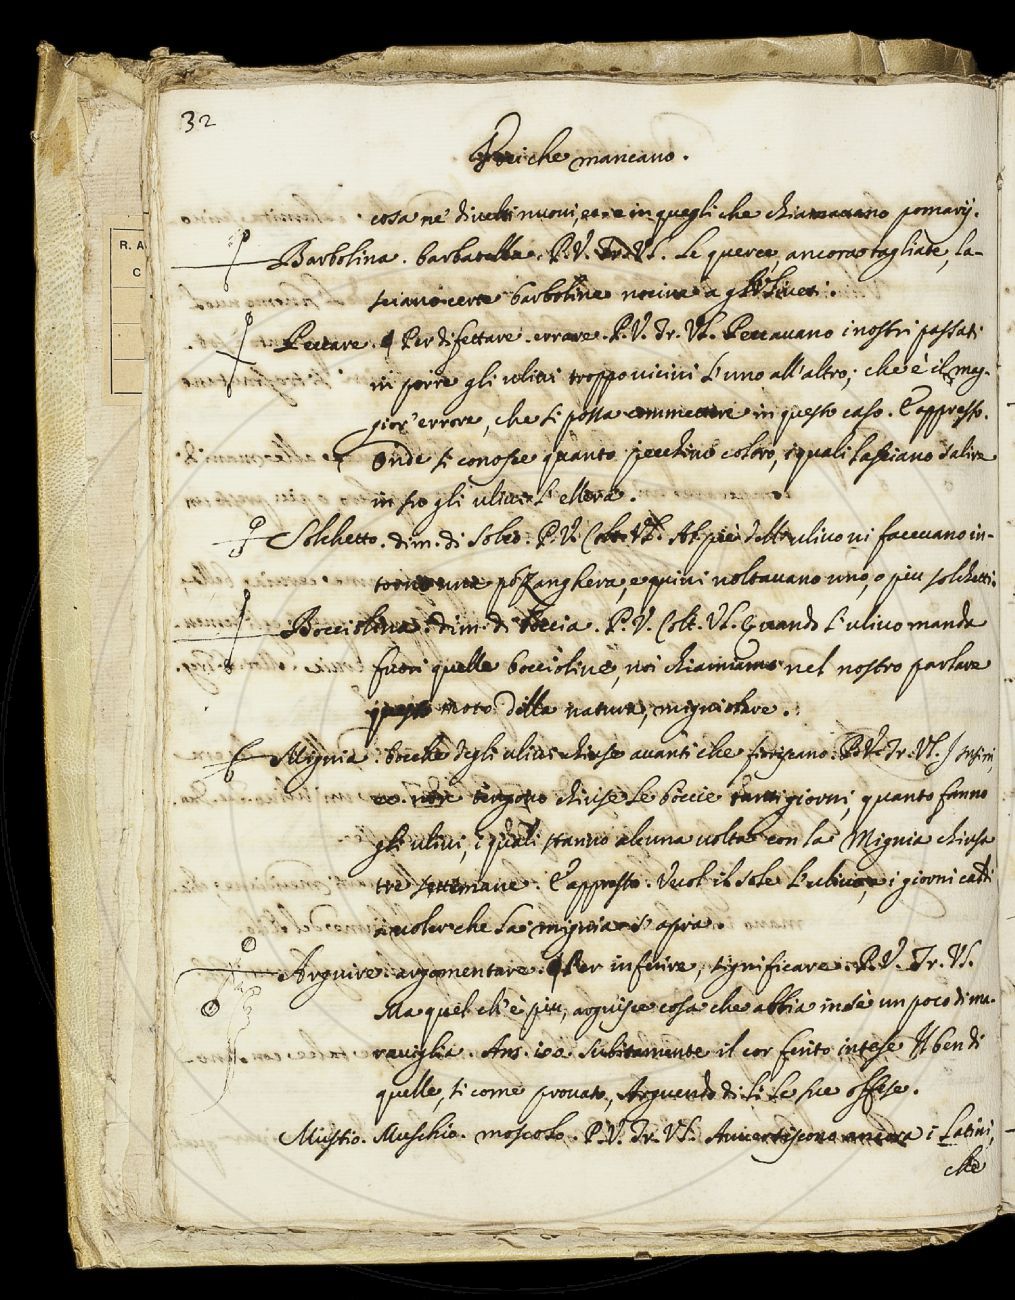 32
Voci che mancano.
cosa ne' divelti nuovi, et in quegli che chiamavano pomarij.
Barbolina. barbatella. P.V. Tr. Vl. Le querce, ancora tagliate, la-
sciano certe barboline nocive a gli Uliveti.
Peccare. Per difettare. errare. P.V. Tr. Vl. Peccavano i nostri passati
in porre gli ulivi troppo vicini l'uno all'altro; che è il mag-
gior' errore, che si possa commettere in questo caso. E appresso.
Onde si conosce quanto pecchino coloro, i quali lasciano salire
in su gli ulivi l'ellera.
Solchetto. dim. di solco. P.V. Colt. Vl. Al piè dell'ulivo vi facevano in-
torno una pozzanghera, e quivi voltavano uno, o piu solchetti.
Bocciolina. dim. di boccia. P.V. Colt. Vl. Quando l'ulivo manda
fuori quelle boccioline, noi chiamiamo nel nostro parlare
questo moto della natura, mignolare.
Mignia. bocche degli ulivi chiuse avanti che fioriscano. P.V. Tr. Vl.
non tengono chiuse le boccie tanti giorni, quanto fanno
gli ulivi, i quali stanno alcuna volta con la Mignia chiusa
tre settimane. E appresso. Vuol il sole l'ulivo, e i giorni caldi
a voler che la mignia s'apra.
Arguire. argomentare. Per inferire, significare. P.V. Tr. Vl.
Ma quel ch'è piu, arguisce cosa che abbia in sè un poco di ma-
raviglia. Ans. 100. Subitamente il cor ferito intese Il ben di
quelle, si come provato, Arguendo di lì le sue offese.
Mustio. Muschio. moscolo. P.V. Tr. Vl. Avvertiscono ancora i Latini,
che